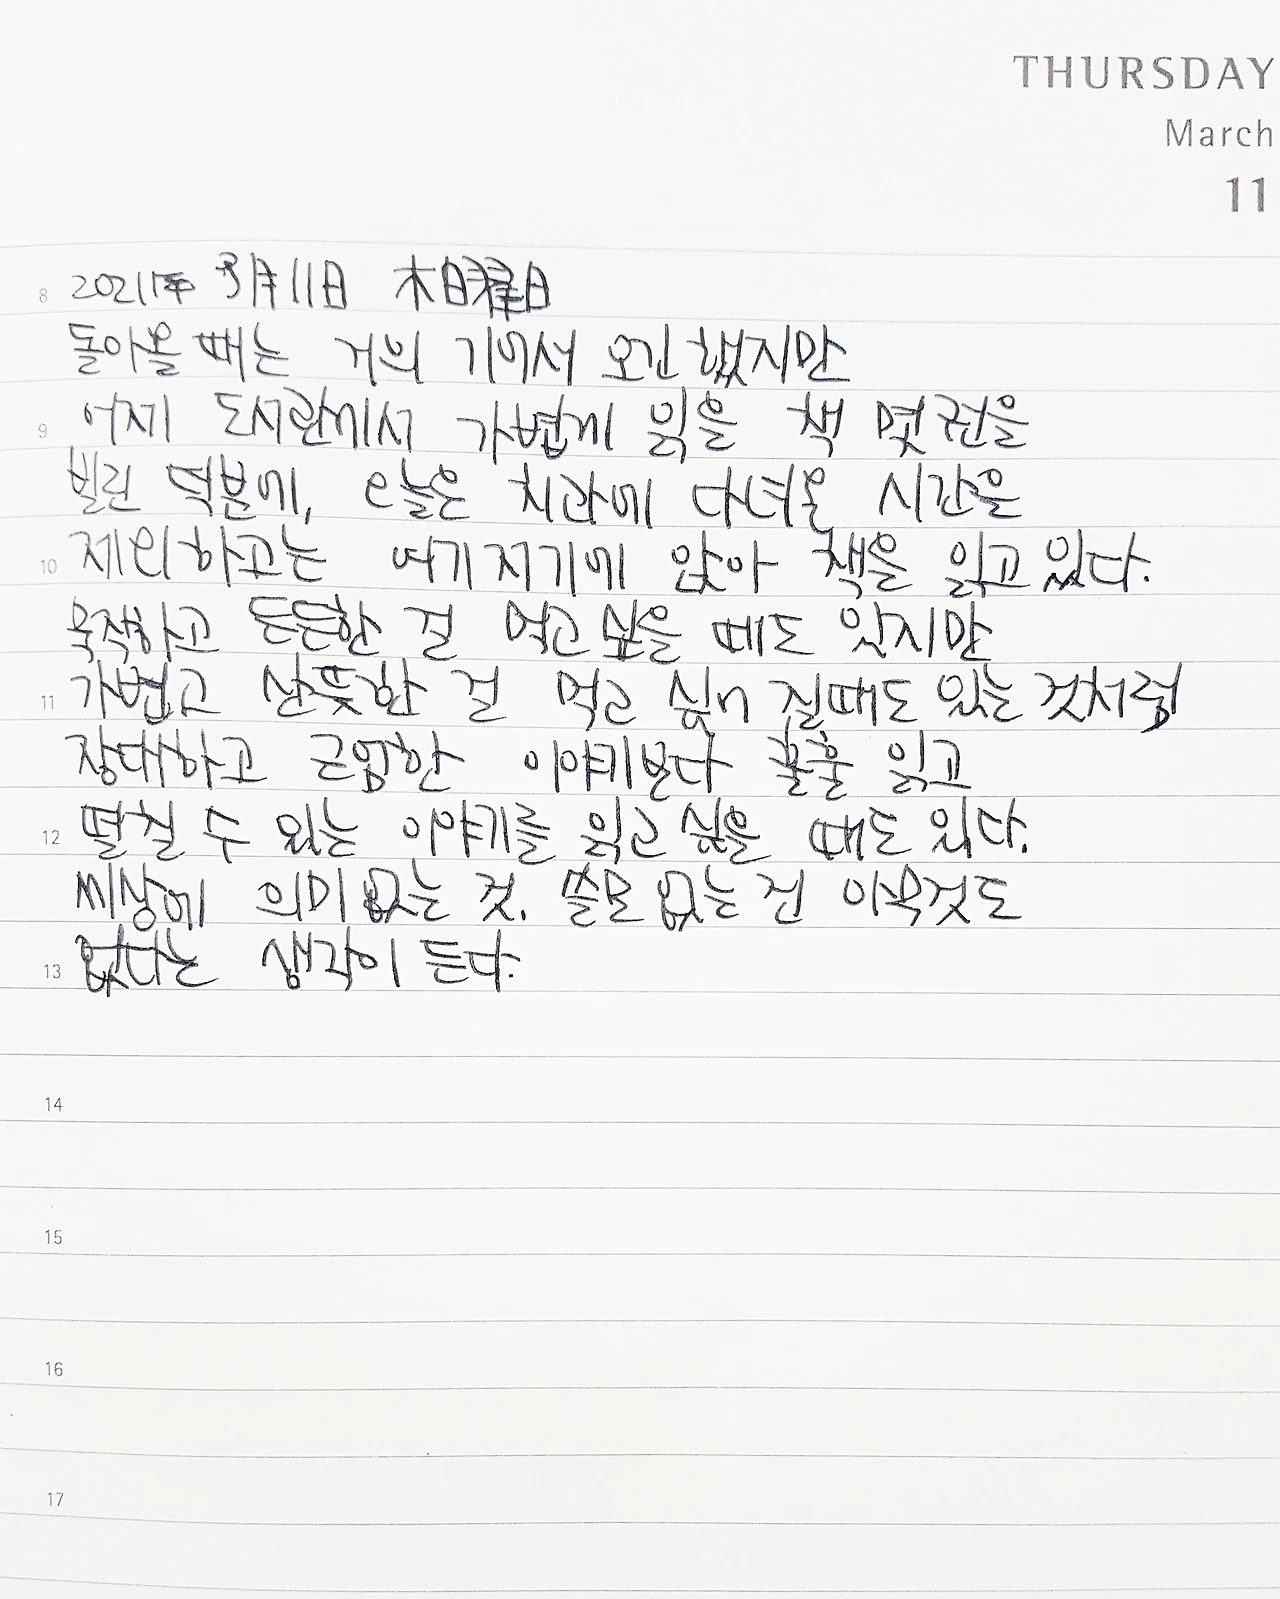 THURSDAY
March
11
8 2021年 3月 11日 木曜日
돌아올 때는 거의 기어서 오긴 했지만
9 어제 도서관에서 가볍게 읽을 책 몇 권을
빌린 덕분에, 오늘은 치과에 다녀온 시간을
10 제외하고는 여기저기에 앉아 책을 읽고 있다.
묵직하고 든든한 걸 먹고 싶을 때도 있지만
11 가볍고 산뜻한 걸 먹고 싶어 질때도 있는 것처럼
장대하고 근엄한 이야기보다 훌훌 읽고
12 떨칠 수 있는 이야기를 읽고 싶을 때도 있다.
세상에 의미 없는 것. 쓸모 없는 건 아무것도
13 없다는 생각이 든다.
14
15
16
17